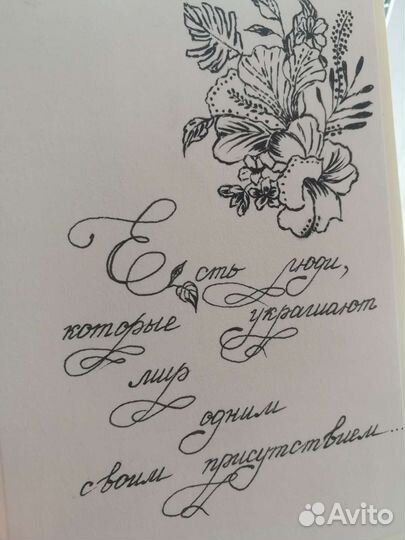 Есть люди,
которые украшают
мир
одним
своим присутствием...
Avito